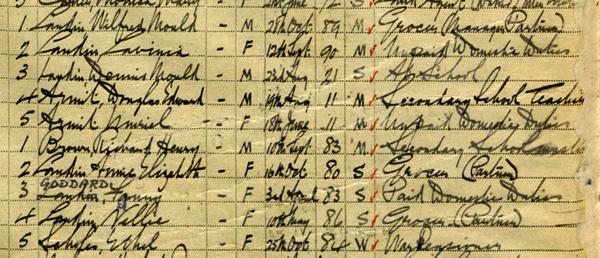 1 Lankin Wilfred Mould - M 28th Oct 89 M Grocer Manager (Partner)
2 Lankin Lavinia - F 12th Sept 90 M Unpaid Domestic Duties
3 Lankin Dennis Mould - M 23rd Aug 21 S At School
4 Armit Douglas Edward - M 19th Aug 11 M Secondary School Teacher
5 Armit Muriel - F 18th June 11 M Unpaid Domestic Duties
1 Brown Henry - M 10th Sept 83 M Secondary Schoolmaster
2 Lankin Annie Elizabeth - F 16th Oct 80 S Grocer (Partner)
GODDARD
3 Lankin, Fanny - F 3rd April 83 S Paid Domestic Duties
4 Lankin Nellie - F 10th May 86 S Grocer (Partner)
5 Ethel - F 25th Oct 84 W War Pensioner